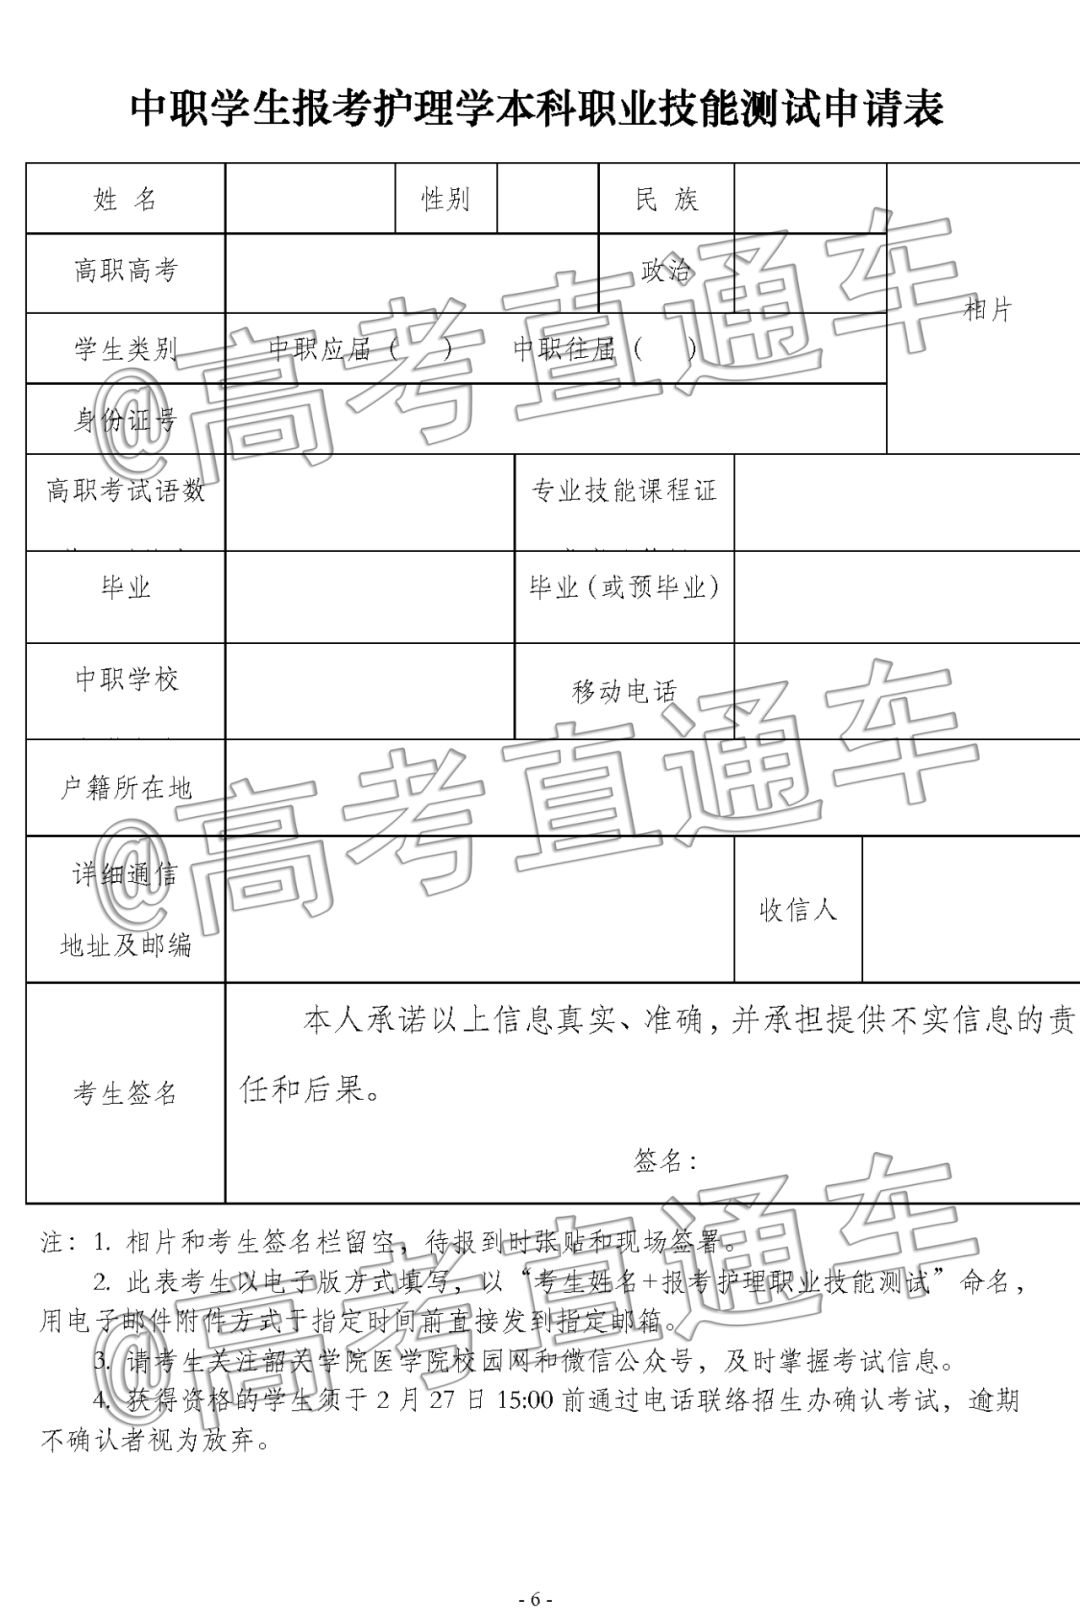 中职学生报考护理学本科职业技能测试申请表
姓 名
性别
民 族
相片
高职高考
政治
学生类别
中职应届（ ）
中职往届（ ）
身份证号
高职考试语数
专业技能课程证
毕业
毕业（或预毕业）
中职学校
移动电话
户籍所在地
详细通信
地址及邮编
收信人
考生签名
本人承诺以上信息真实、准确，并承担提供不实信息的责
任和后果。
签名：
注：1. 相片和考生签名栏留空，待报到时张贴和现场签署。
2. 此表考生以电子版方式填写，以“考生姓名+报考护理职业技能测试”命名，
用电子邮件附件方式于指定时间前直接发到指定邮箱。
3. 请考生关注韶关学院医学院校园网和微信公众号，及时掌握考试信息。
4. 获得资格的学生须于 2 月 27 日 15:00 前通过电话联络招生办确认考试，逾期
不确认者视为放弃。
- 6 -
@高考直通车
@高考直通车
@高考直通车